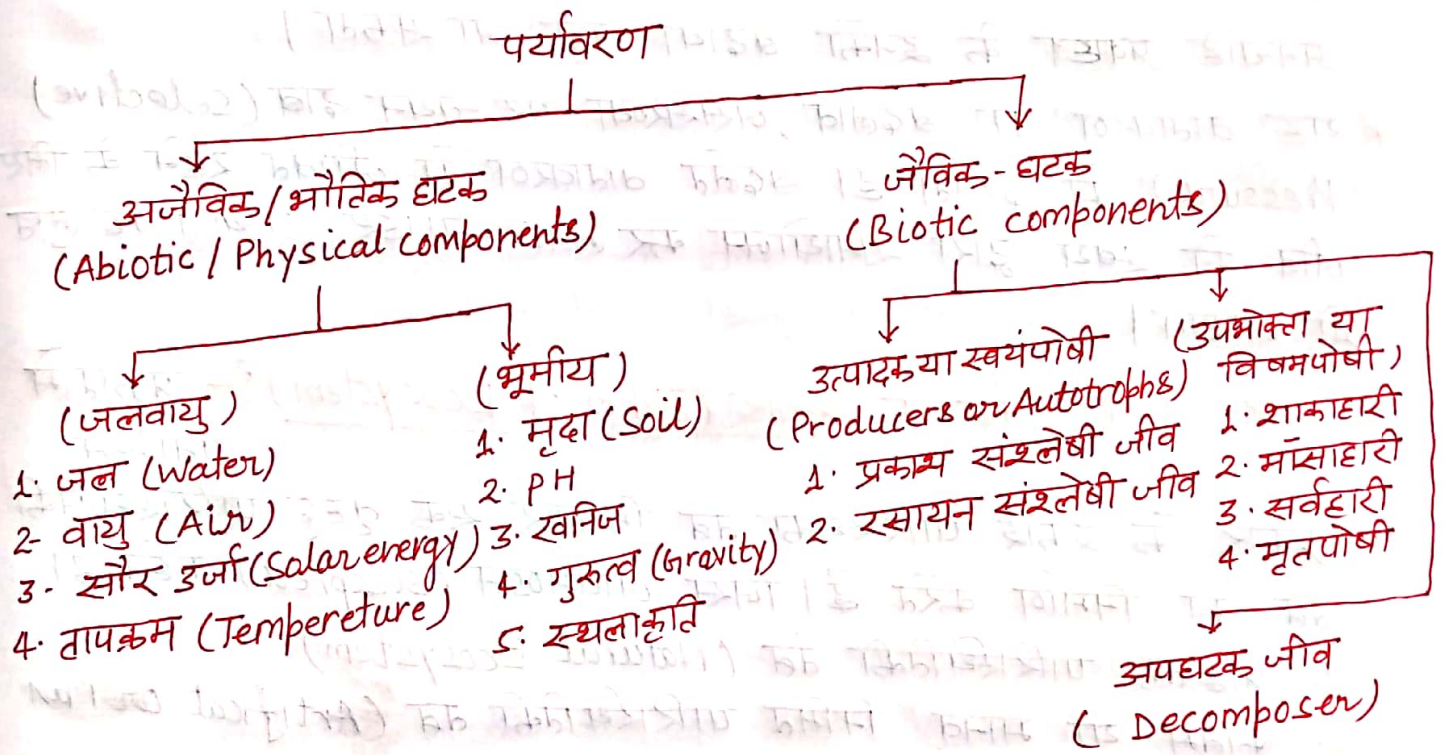 पर्यावरण
अजैविक / भौतिक घटक
(Abiotic / Physical components)
जैविक - घटक
(Biotic components)
(जलवायु)
1. जल (Water)
2- वायु (Air)
3- सौर उर्जा (Solar energy)
4. तापक्रम (Tempereture)
(भूमीय)
1. मृदा (Soil)
2. PH
3. खनिज
4. गुरुत्व (Gravity)
5. स्थलाकृति
उत्पादक या स्वयंपोषी
(Producers or Autotrophs)
1. प्रकाश संश्लेषी जीव
2. रसायन संश्लेषी जीव
(उपभोक्ता या
विषमपोषी)
1. शाकाहारी
2. माँसाहारी
3. सर्वहारी
4. मृतपोषी
अपघटक जीव
(Decomposer)